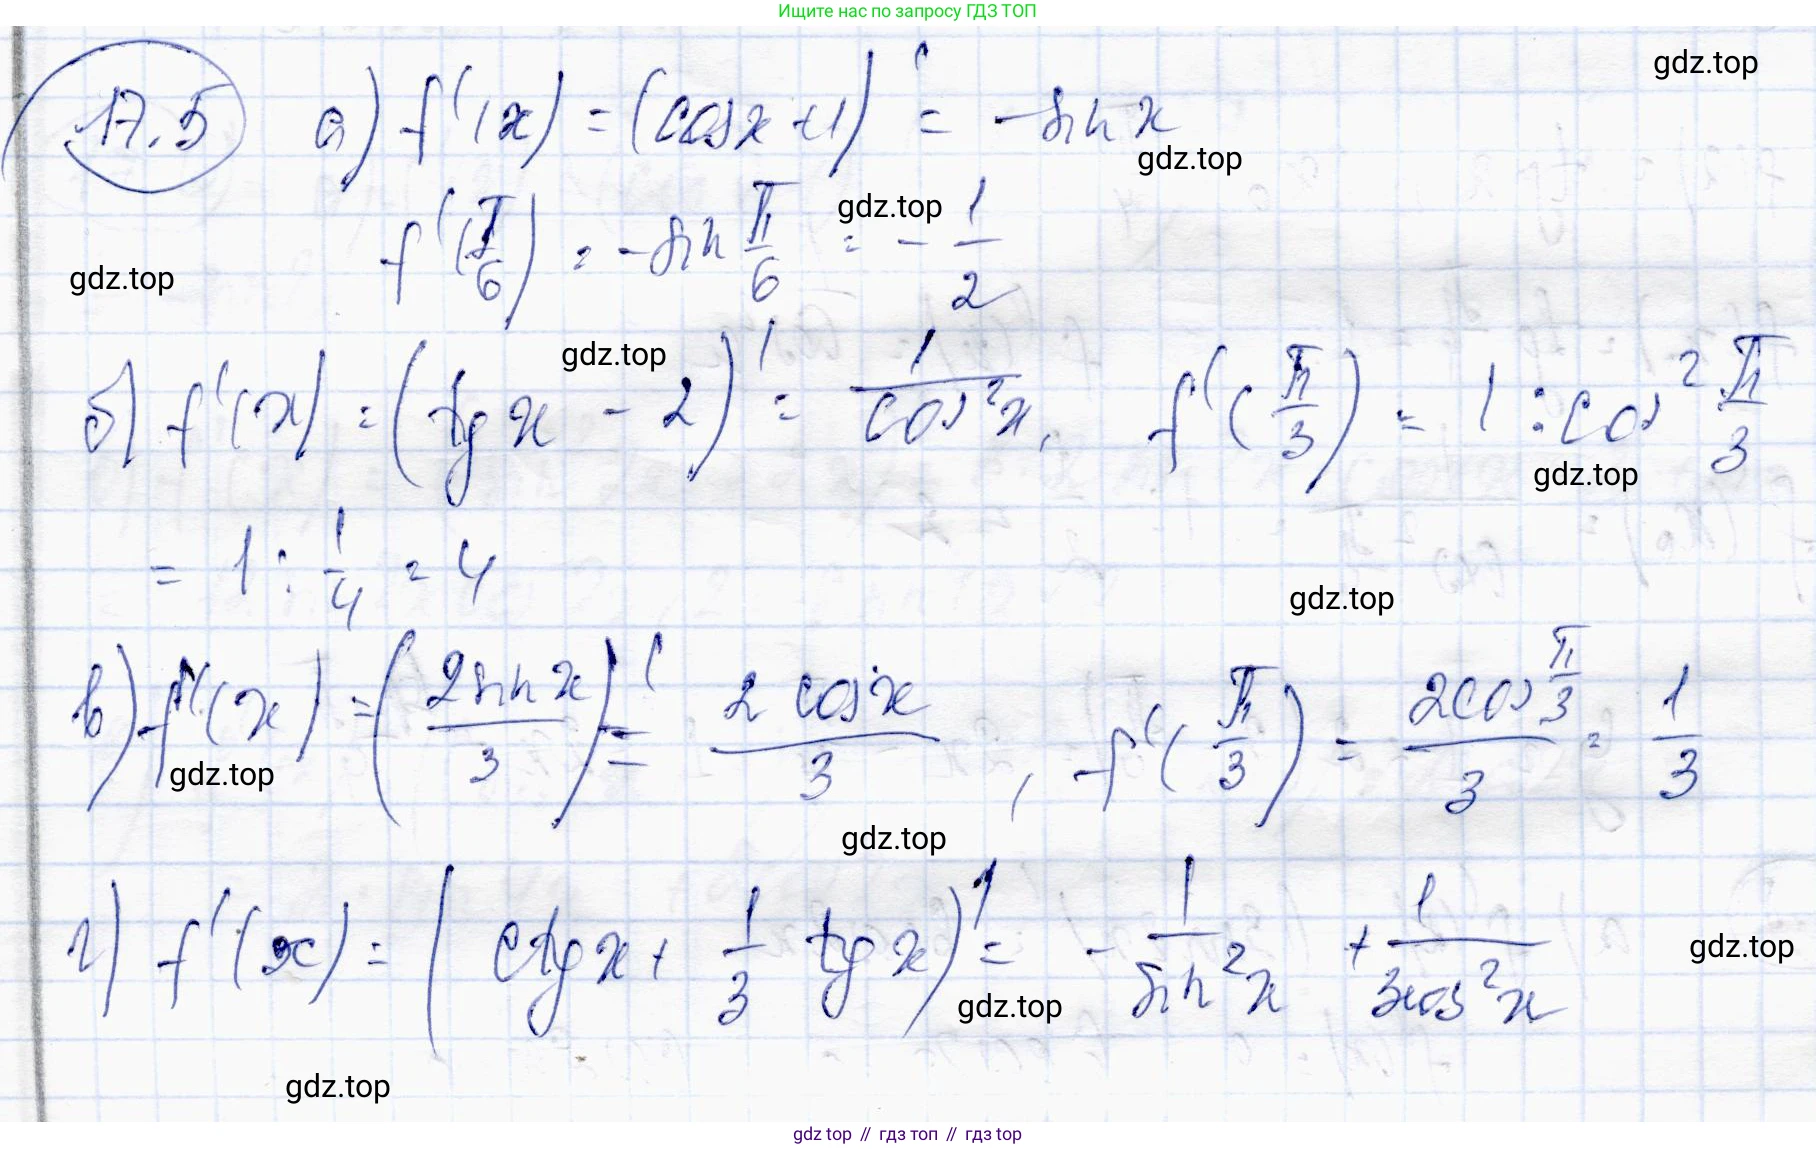 Ищите нас по запросу ГДЗ ТОП
gdz.top
17.5 а) f'(x) = (cos x + 1)' = - sin x
gdz.top
gdz.top
f'(π/6) = - sin π/6 = - 1/2
gdz.top
gdz.top
б) f'(x) = (tg x - 2)' = 1/cos² x, f'(π/3) = 1 : cos² π/3
gdz.top
= 1 : 1/4 = 4
gdz.top
в) f'(x) = (2 sin x / 3)' = 2 cos x / 3, f'(π/3) = 2 cos π/3 / 3 = 1/3
gdz.top
gdz.top
г) f'(x) = (ctg x + 1/3 tg x)' = - 1/sin² x + 1/3 cos² x
gdz.top
gdz.top
gdz.top
gdz top // гдз топ // gdz top